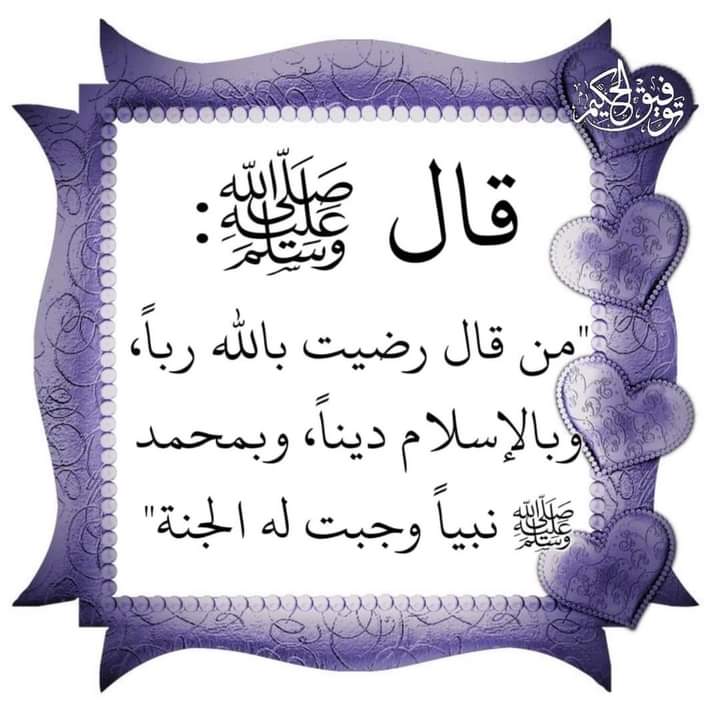 توفيق الحكيم
قال ﷺ:
"من قال رضيت بالله رباً،
وبالإسلام ديناً، وبمحمد
ﷺ نبياً وجبت له الجنة"